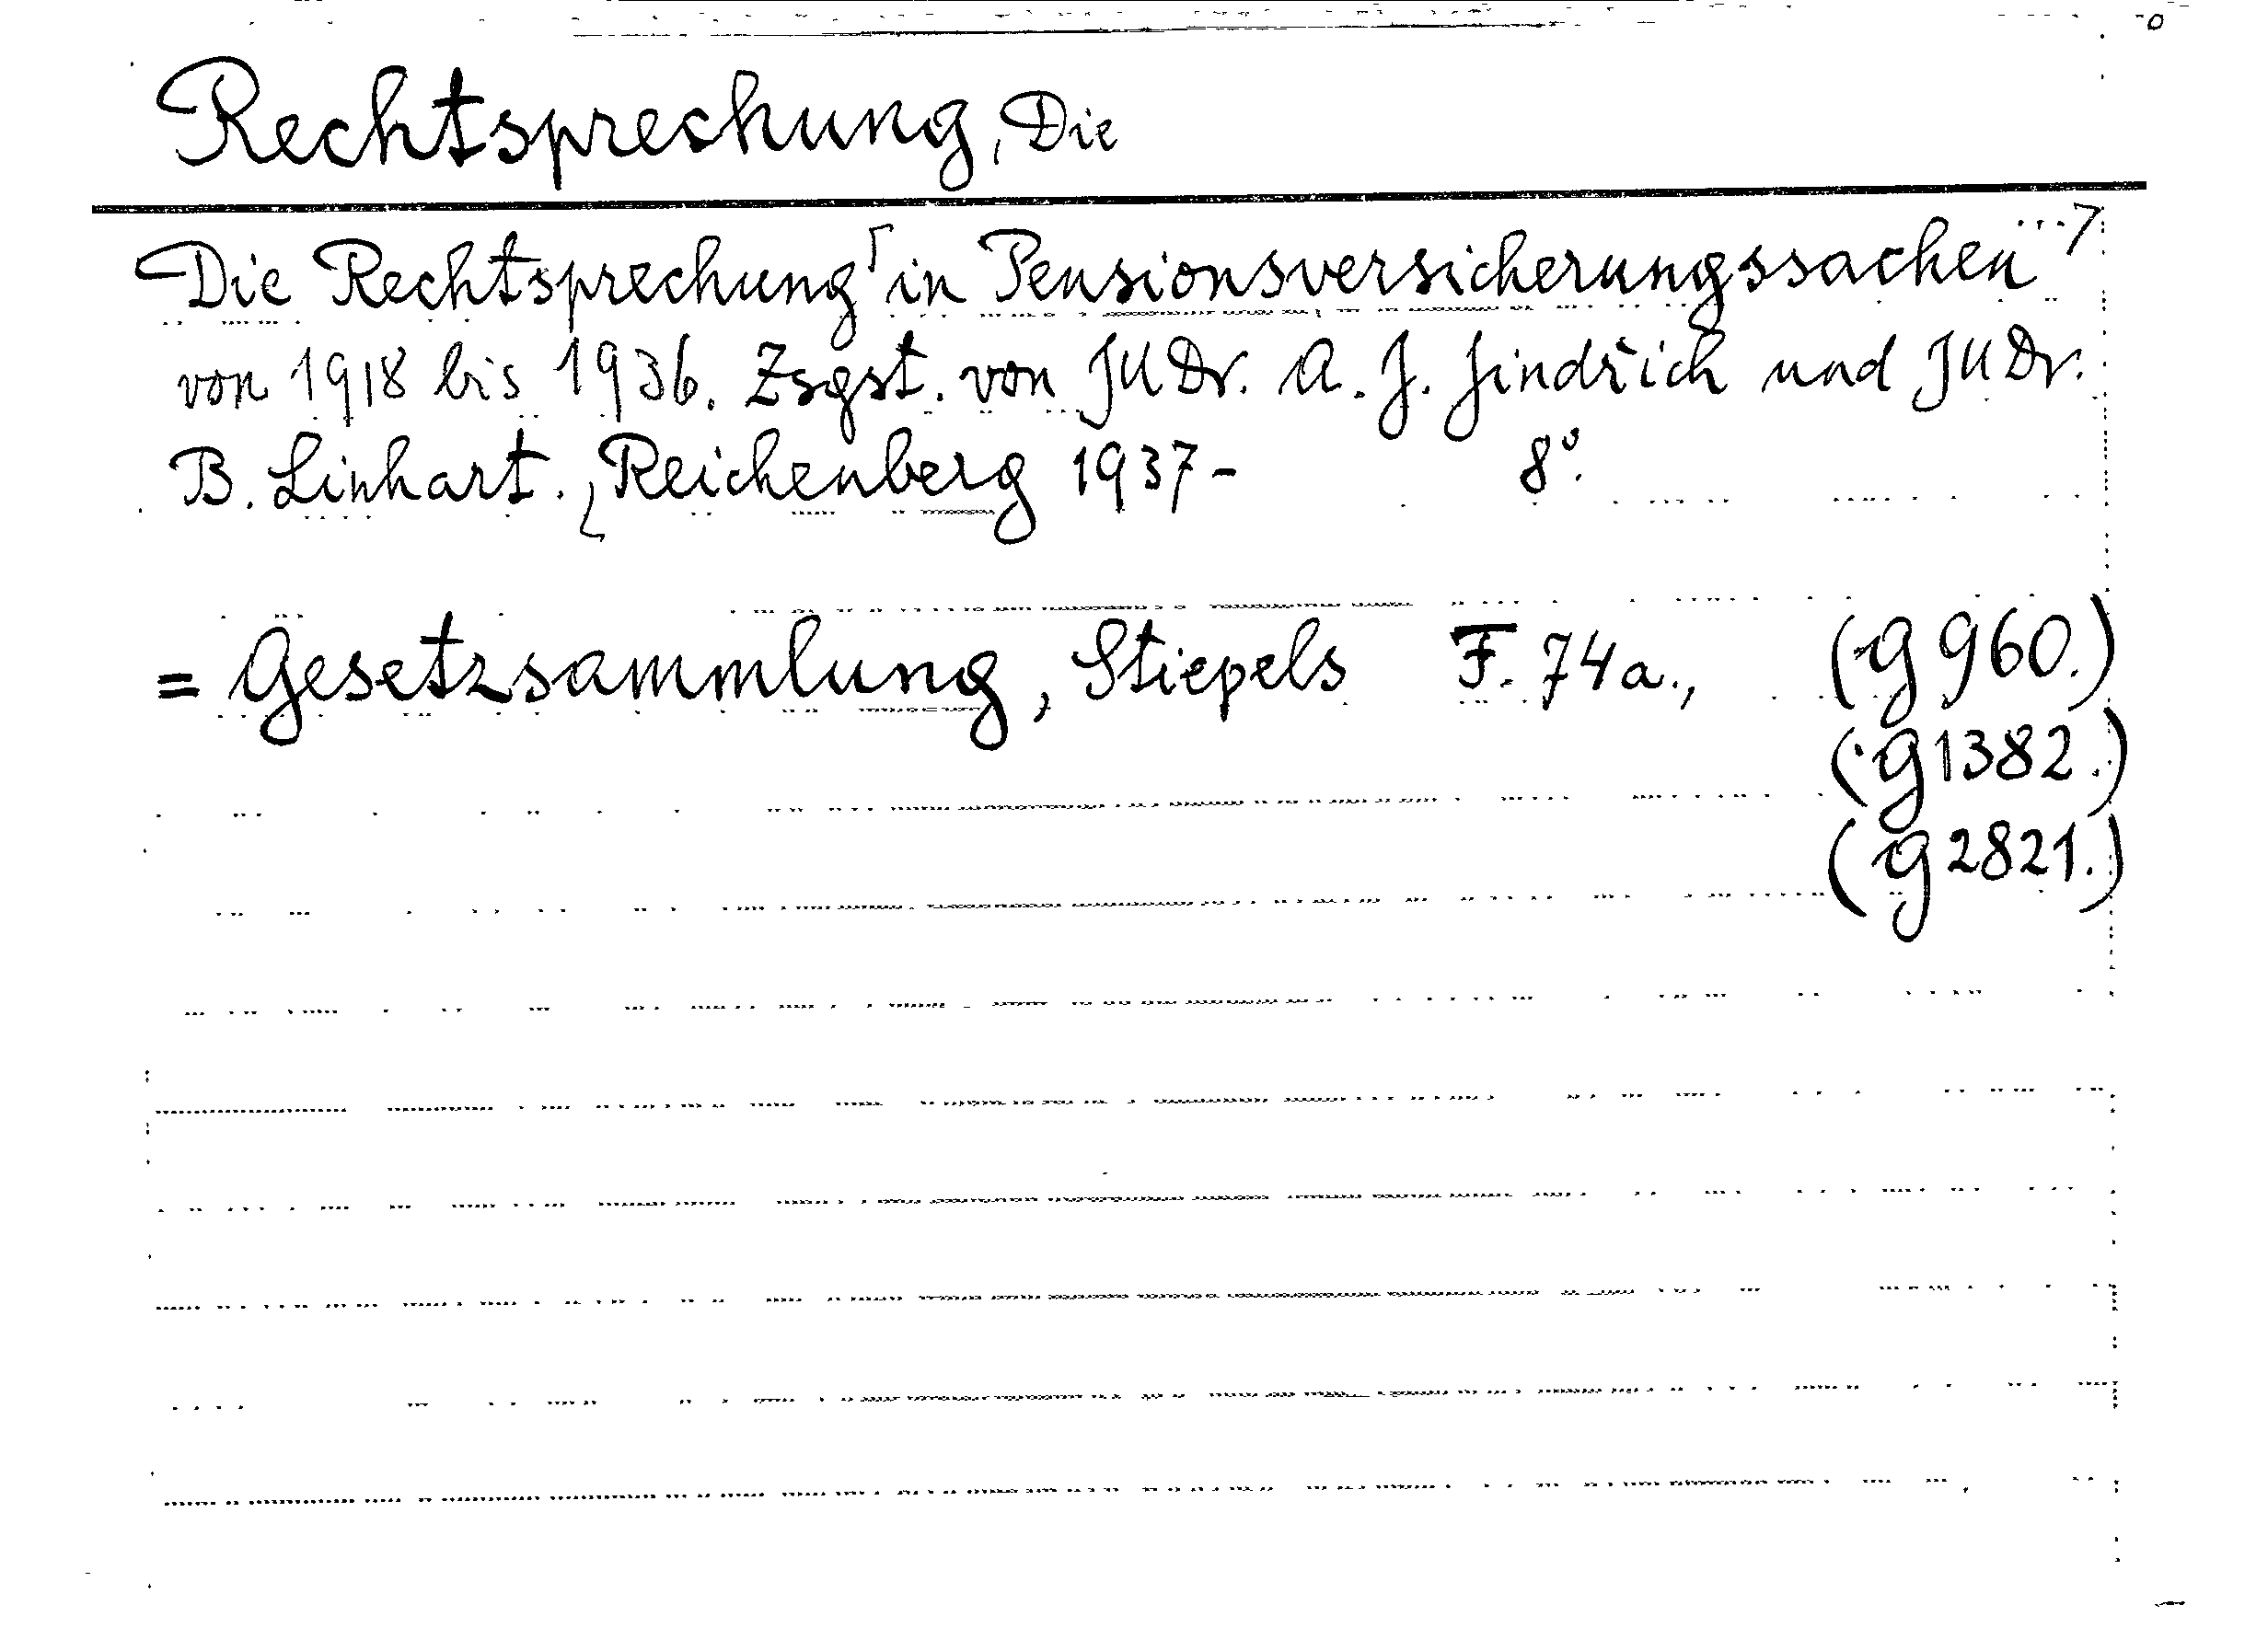 Rechtsprechung, Die
Die Rechtsprechung in Pensionsversicherungssachen
von 1918 bis 1936. Zsgst. von JUDr. A. J. Jindřich und JUDr.
B. Linhart. Reichenberg 1937- 8°.
= Gesetzsammlung, Stiepels F. 74a., (g 960.)
(g 1382.)
(g 2821.)